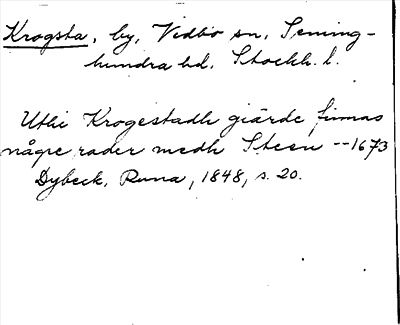 Krogsta, by, Vidbo sn, Seming-
hundra hd, Stockh. l.
Uthi Krogestadh giärde finnas
någre rader medh Steen --1673
Dybeck, Runa, 1848, s. 20.